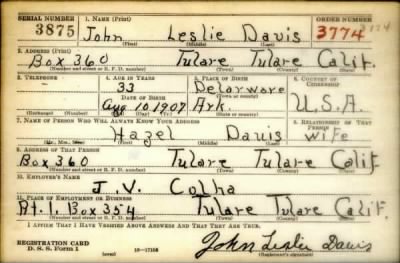 SERIAL NUMBER 1. NAME (Print) ORDER NUMBER
3875 John Leslie Davis 3774
(First) (Middle) (Last)
2. ADDRESS (Print)
Box 360 Tulare Tulare Calif.
(Number and street or R. F. D. number) (Town) (County) (State)
3. TELEPHONE 4. AGE IN YEARS 5. PLACE OF BIRTH 6. COUNTRY OF CITIZENSHIP
33 Delarware
DATE OF BIRTH (Town or county)
Aug 10, 1907 Ark. U.S.A.
(Exchange) (Number) (Mo.) (Day) (Yr.) (State or country)
7. NAME OF PERSON WHO WILL ALWAYS KNOW YOUR ADDRESS 8. RELATIONSHIP OF THAT PERSON
Hazel Davis wife
(Mr., Mrs., Miss) (First) (Middle) (Last)
9. ADDRESS OF THAT PERSON
Box 360 Tulare Tulare Calif
(Number and street or R. F. D. number) (Town) (County) (State)
10. EMPLOYER'S NAME
J. V. Colha
11. PLACE OF EMPLOYMENT OR BUSINESS
Rt. 1. Box 354 Tulare Tulare Calif.
(Number and street or R. F. D. number) (Town) (County) (State)
I AFFIRM THAT I HAVE VERIFIED ABOVE ANSWERS AND THAT THEY ARE TRUE.
REGISTRATION CARD
D. S. S. Form 1 (over) 16-17105 John Leslie Davis
(Registrant's signature)